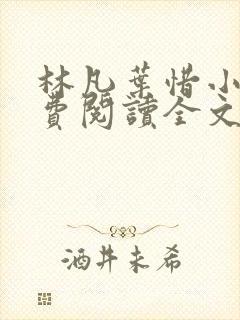 林凡葉惜小
費閱讀全文
酒井未希